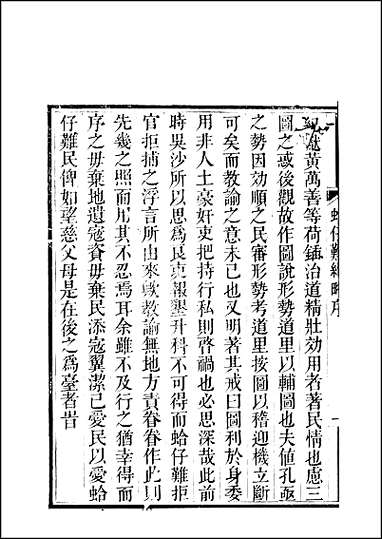 蛤仔難紀略序 一
黃萬善等荷鍤治道精壯効用者著民情也慮三
圖之惑後觀故作圖說形勢道里以輔圖也夫值孔亟
之勢因効順之民審形勢考道里按圖以稽迎機立斷
可矣而教諭之意未已也又明著其戒曰圖利於身委
用非人土豪奸吏把持行私則啓禍也必思深哉此前
時吳沙所以思爲良衷報墾升科不可得而蛤仔難拒
官拒捕之浮言所由來歟教諭無地方責眷眷作此則
先幾之照而用其不忍焉耳余雖不及行之猶幸得而
序之毋棄地遺寇資毋棄民添寇翼潔己愛民以愛蛤
仔難民俾如望慈父母是在後之爲臺者昔